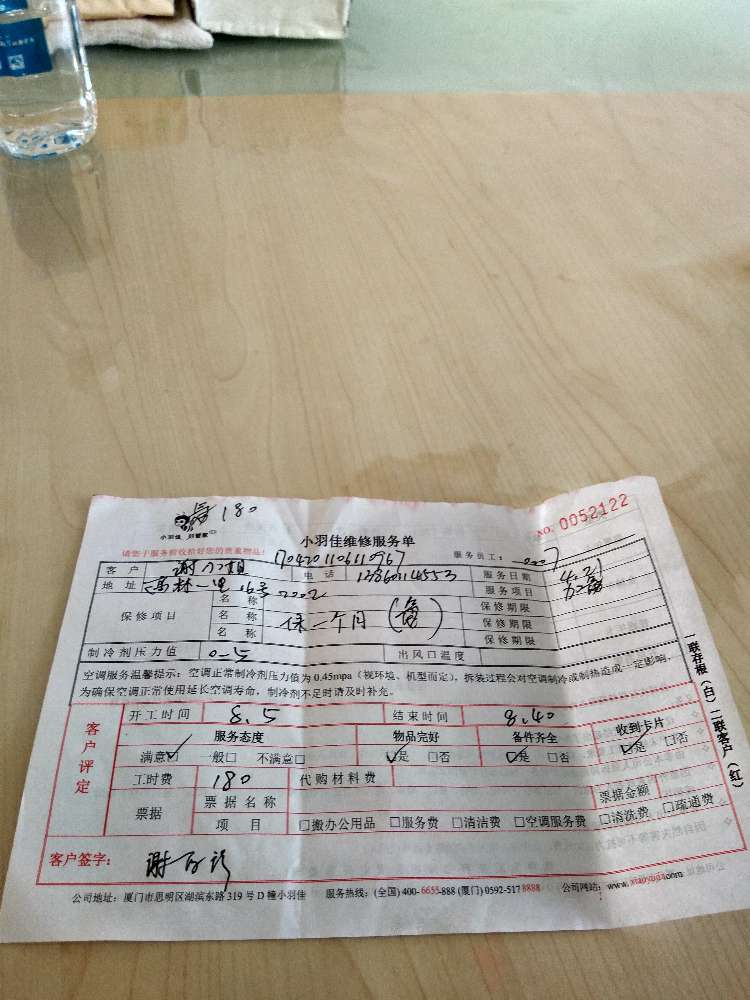 180
小羽佳 好管家
NO. 0052122
小羽佳维修服务单
请您于服务前收拾好您的贵重物品!
704201106110967
服务员工:
客户 谢小姐 电话 13860114553 服务日期 4.21
地址 高林一里16号 服务项目
保修项目 名称 保修期限
名称 保一个月 保修期限
名称 保修期限
制冷剂压力值 0-5 出风口温度
空调服务温馨提示:空调正常制冷剂压力值为0.45mpa(视环境、机型而定),拆装过程会对空调制冷或制热造成一定影响,
为确保空调正常使用延长空调寿命,制冷剂不足时请及时补充。
客户评定
开工时间 8.5 结束时间 8.40
服务态度 物品完好 备件齐全 收到卡片
满意□ 一般□ 不满意□ □是 □否 □是 □否 □是 □否
工时费 180 代购材料费
票据 票据名称 票据金额
项目 □搬办公用品 □服务费 □清洁费 □空调服务费 □清洗费 □疏通费
客户签字: 谢
公司地址:厦门市思明区湖滨东路319号D幢小羽佳 服务热线:(全国)400-6655-888 (厦门)0592-5178888 公司网站:www.xiaoyujia.com
一联存根(白)二联客户(红)